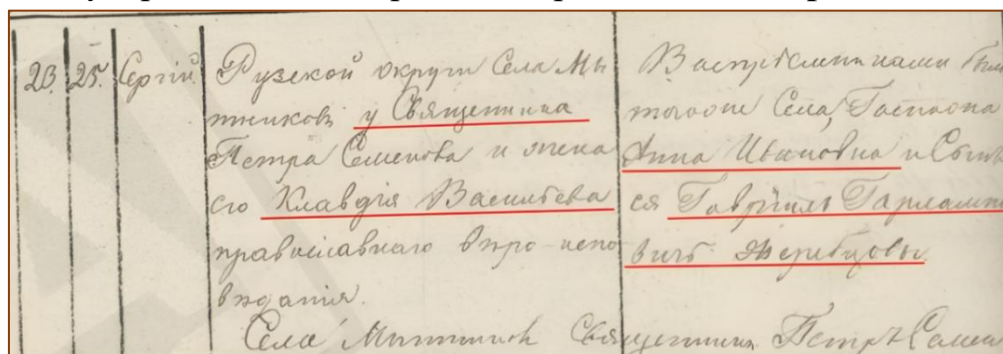 23. 25. Сергій. Рузской округи Села Мы
тниковъ у Священника
Петра Семенова и жена
его Клавдія Васильева
православнаго вѣро испо
вѣданія.
Воспріемниками были
тогоже Села, Госпожа
Анна Ивановна и Сынъ
ея Гавріилъ Гарлампі
вичъ Жеребцовы.
Села Мытниковъ Священникъ Петръ Семен